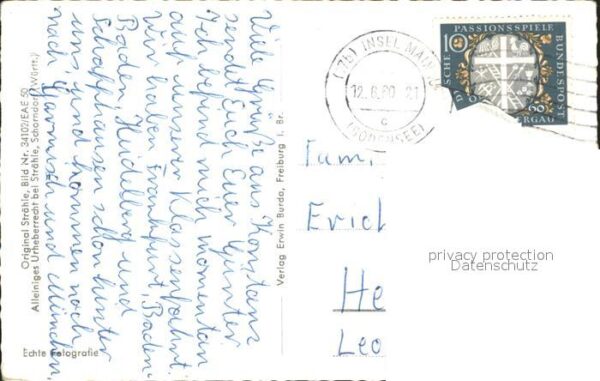 Viele Grüße aus Konstanz
sendet Euch Euer Günter
Ich befind mich momentan
auf unserer Klassenfahrt.
Wir haben Frankfurt, Baden-
Baden, Heidelberg und
Schaffhausen schon hinter
uns und kommen noch
nach Garmisch und München.
Original Strähle, Bild Nr. 34102/EAE 50
Alleiniges Urheberrecht bei Strähle, Schorndorf (Württ.)
Echte Fotografie
Verlag Erwin Burda, Freiburg i. Br.
(16) INSEL MAINAU
12.8.60 21
c
(BODENSEE)
10
PASSIONSSPIELE
DEUTSCHE
BUNDESPOST
60
ERGAU
Fam.
Erich
He
Leo
privacy protection
Datenschutz